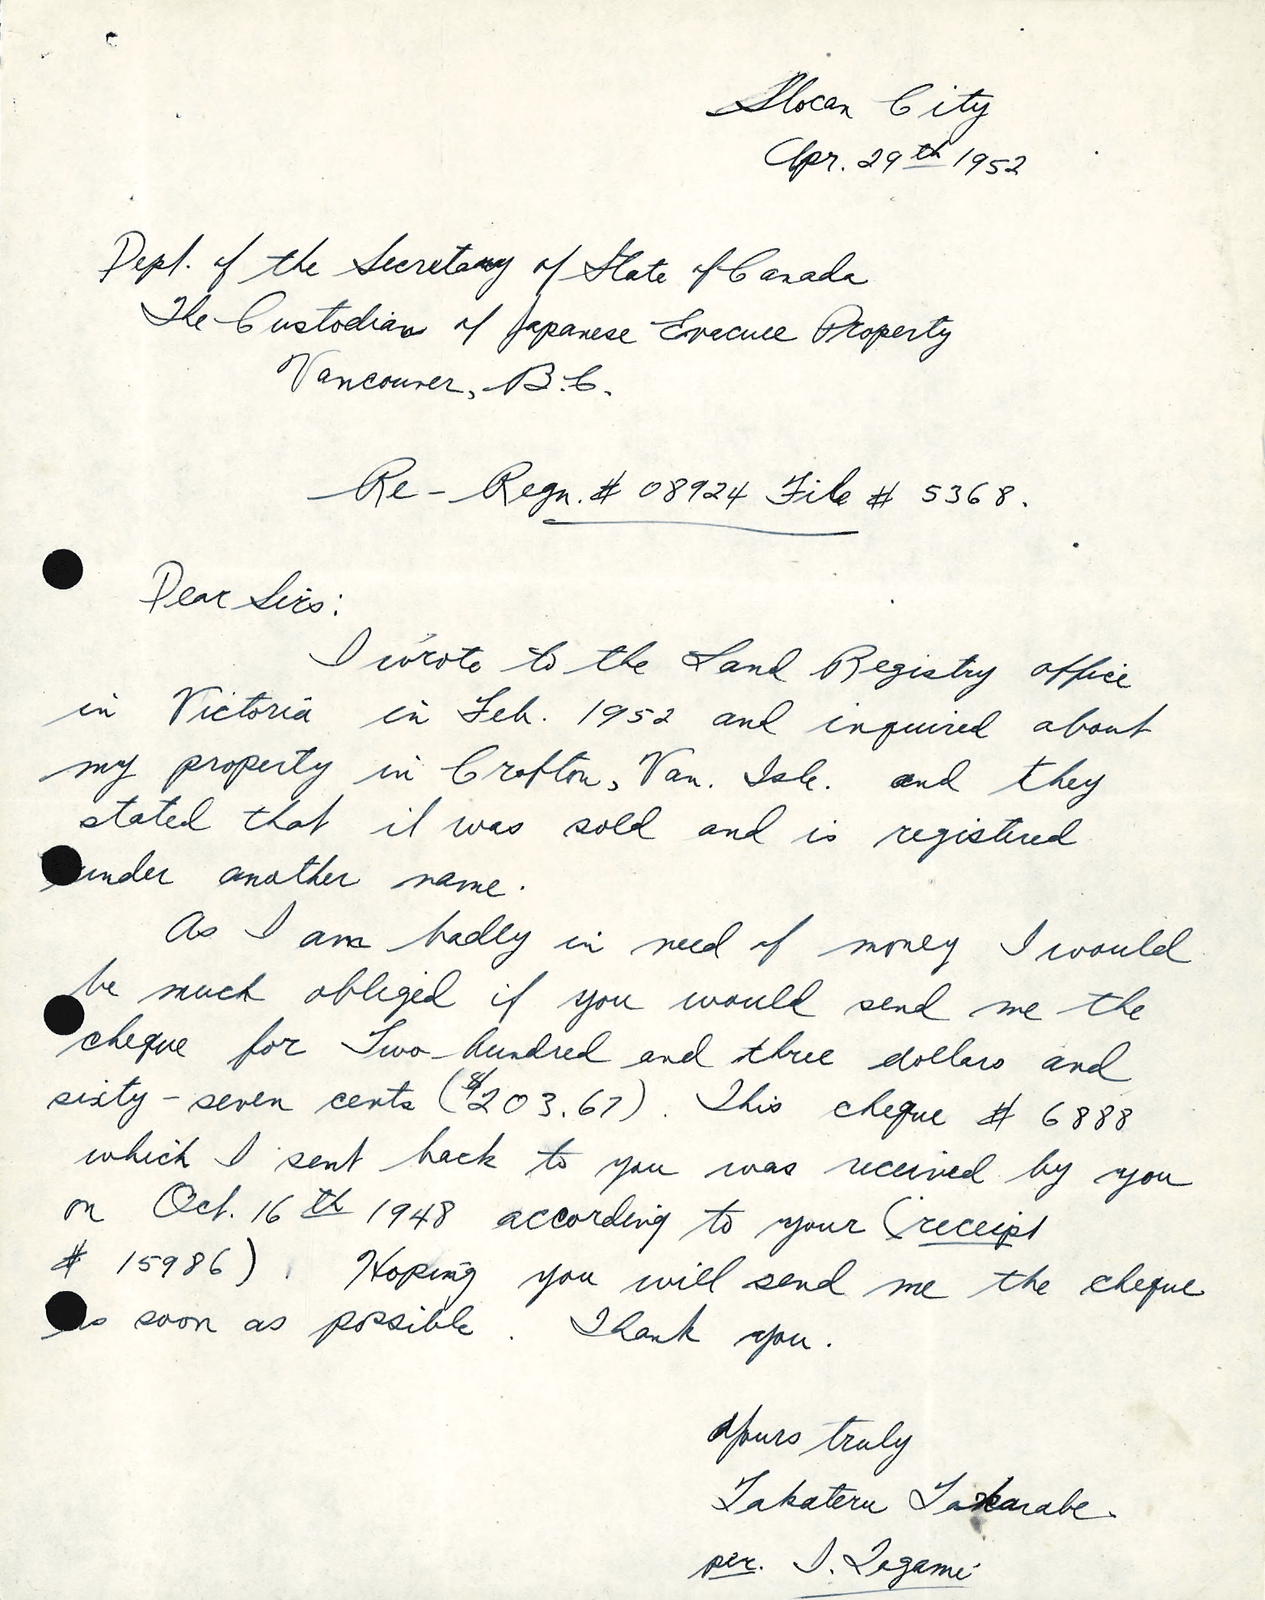 Slocan City
Apr. 29th 1952
Dept. of the Secretary of State of Canada
The Custodian of Japanese Evacuee Property
Vancouver, B.C.
Re - Regn. # 08924 File # 5368.
Dear Sirs:
I wrote to the Land Registry office
in Victoria in Feb. 1952 and inquired about
my property in Crofton, Van. Isle. and they
stated that it was sold and is registered
under another name.
As I am badly in need of money I would
be much obliged if you would send me the
cheque for Two hundred and three dollars and
sixty-seven cents ($203.67). This cheque # 6888
which I sent back to you was received by you
on Oct. 16th 1948 according to your (receipt
# 15986). Hoping you will send me the cheque
as soon as possible. Thank you.
Yours truly
Takateru Takarabe.
per. I. Togami